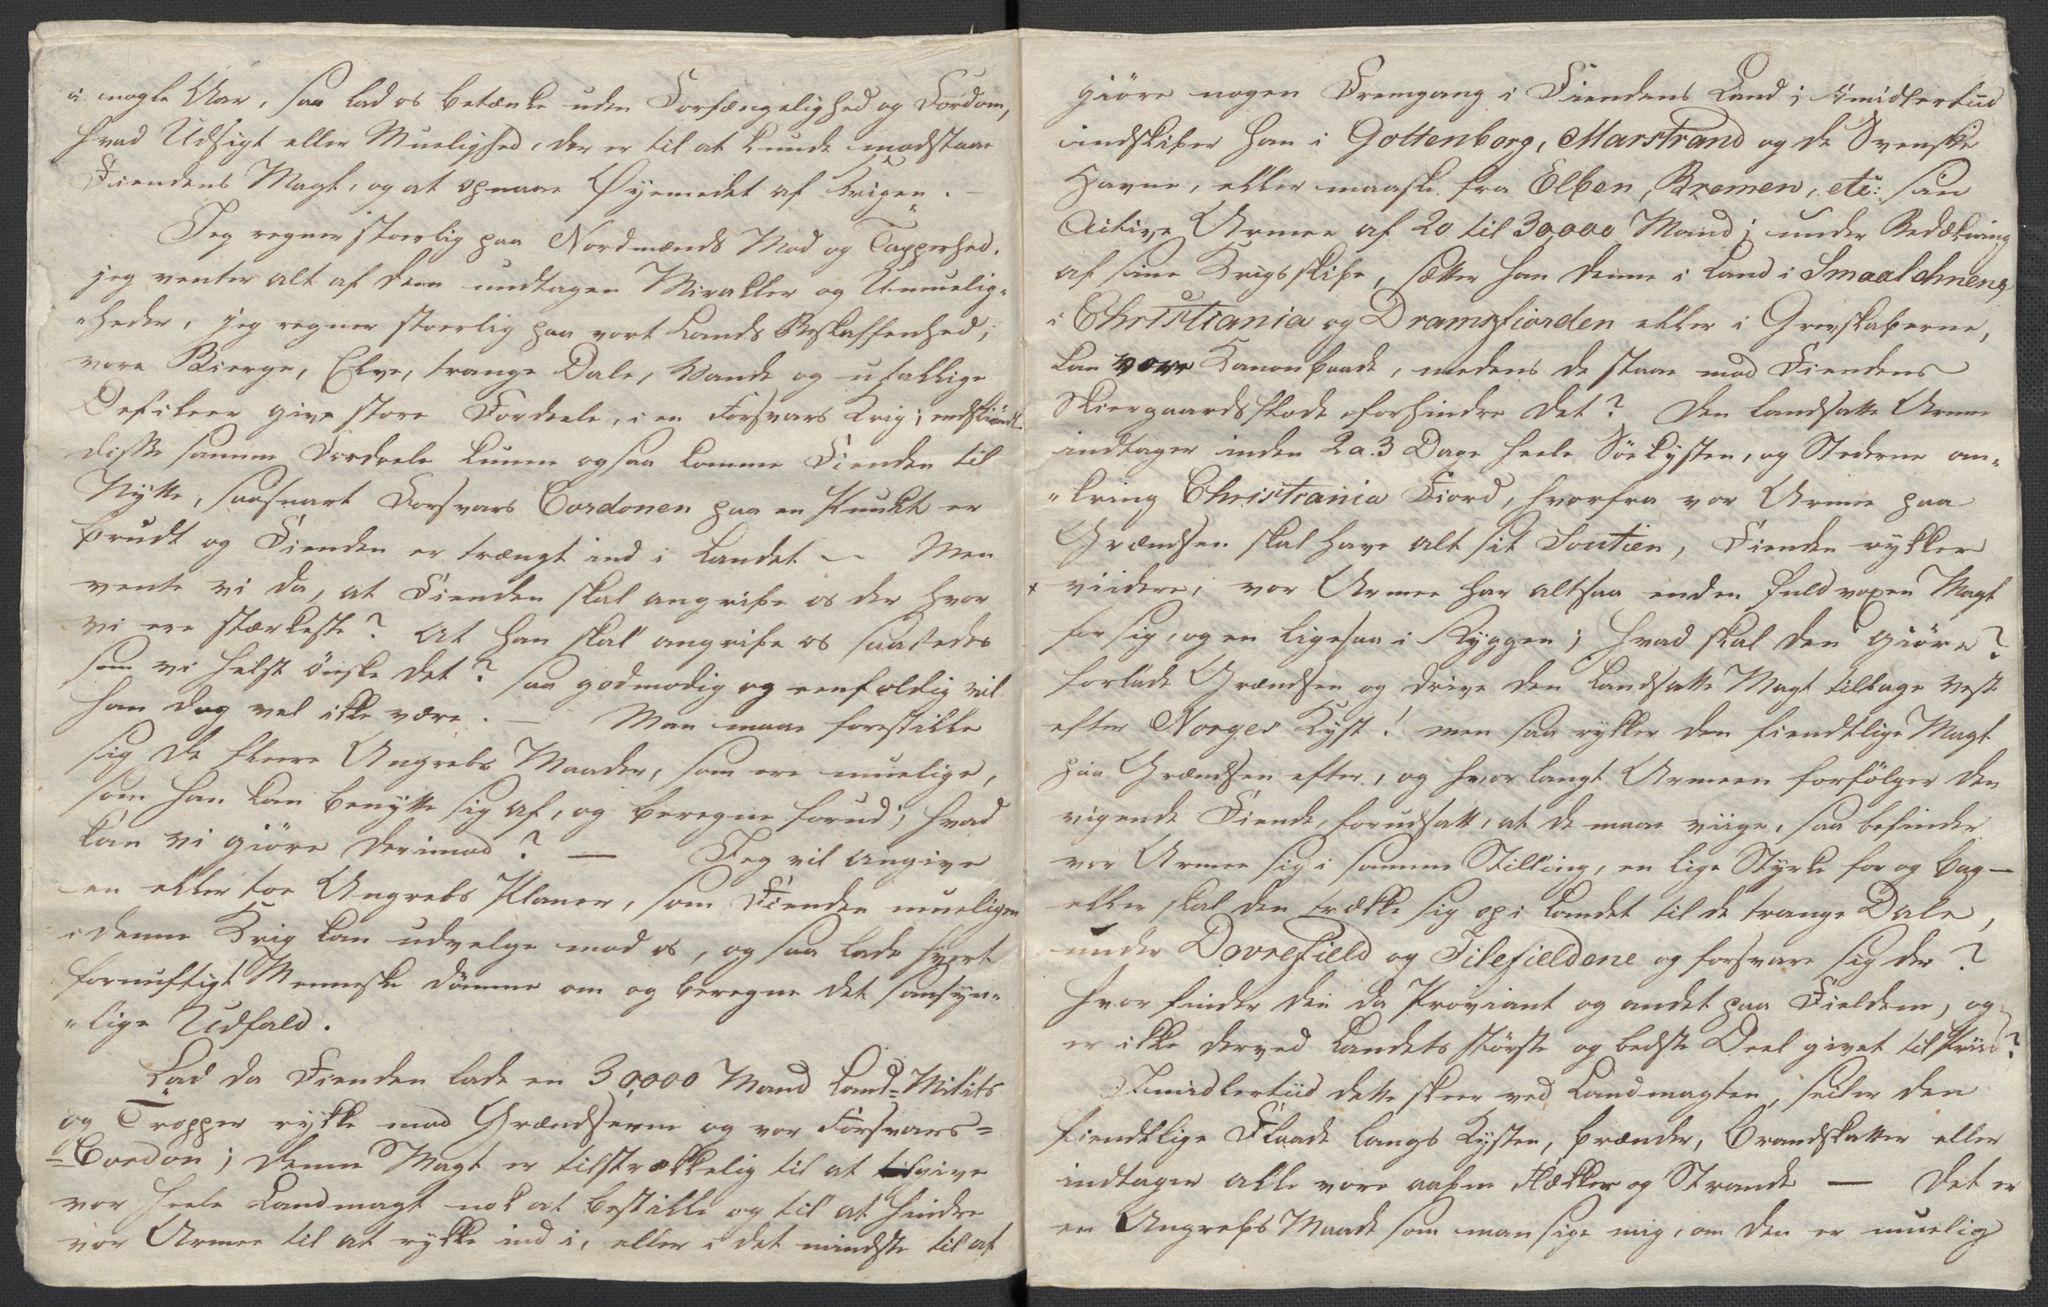 i nogle Aar, saa lad os betænke uden Forfængelighed og Fordom,
hvad Udsigt eller Muelighed, der er til at kunde modstaae
Fiendens Magt, og at opnaae Øyemedet af Krigen. —
Jeg regner stoerlig paa Nordmænds Mod og Tapperhed.
jeg venter alt af dem undtagen Mirakler og Umuelig-
"heder, jeg regner stoerlig paa vort Lands Beskaffenhed;
vore Bierge, Elve, trange Dale, Vande og utallige
Defileer give store Fordeele, i en Forsvars Krig; endskiøndt
disse samme Fordeele kunne ogsaa komme Fienden til
Nytte, saasnart Forsvars Cordonen paa en Punkt er
brudt og Fienden er trængt ind i Landet — Men
vente vi da, at Fienden skal angribe os der hvor
vi ere stærkeste? At han skal angribe os saaledes
som vi helst ønske det? saa godmodig og eenfoldig vil
han dog vel ikke være. — Man maae forestille
sig de fleere Angrebs Maader, som ere muelige,
som han kan benytte sig af, og beregne forud; hvad
kan vi giöre derimod? — Jeg vil angive
en eller toe Angrebs Planer, som Fienden mueligen
i denne Krig kan udvelge mod os, og saa lade hvert
fornuftigt Menneske dömme om og beregne det sansyn-
"lige Udfald.
Lad da Fienden lade en 30,000 Mand Land-Milits
og Tropper rykke mod Grændserne og vor Forsvars-
=Cordon; denne Magt er tilstrækkelig til at give
vor heele Landmagt nok at bestille og til at hindre
vor Armee til at rykke ind i, eller i det mindste til at
giöre nogen Fremgang i Fiendens Land; imidlertiid
indskiber han i Gottenborg, Marstrand og de Svenske
Havne, eller maaske fra Elben, Bremen, etc: sin
Active Armee af 20 til 30,000 Mand; under Bedækning
af sine Krigsskibe, sætter han denne i Land i Smaalehnene,
i Christiania og Dramsfiorden eller i Grevskaberne,
kan vore Kanonbaade, medens de staae mod Fiendens
Skiergaardsflode forhindre det? Den landsatte Armee
indtager inden 2 a 3 Dage heele Söekysten, og Stederne om-
"kring Christiania Fiord, hvorfra vor Armee paa
Grændsen skal have alt sit Soutien, Fienden rykker
viidere, vor Armee har altsaa enden fuldvoxen Magt
for sig, og en ligesaa i Ryggen; hvad skal den giöre?
forlade Grændsen og drive den landsatte Magt tilbage Vest
efter Norges Kyst! men saa rykker den fiendtlige Magt
paa Grændsen efter, og hvor langt Armeen forfölger den
vigende Fiende, forudsatt, at de maae viige, saa befinder
vor Armee sig i samme Stilling, en lige Styrke for og bag —
eller skal den trække sig op i Landet til de trange Dale,
under Dovrefield og Filefieldene og forsvare sig der?
hvor finder den da Proviant og andet paa Fieldene, og
er ikke derved Landets störste og bedste Deel givet til Priis?
Imidlertiid dette skeer ved Landmagten, seiler den
fiendtlige Flaade langs Kysten, brænder, brandskatter eller
indtager alle vore aabne Flækker og Strande — Det er
en Angrebs Maade som man sige mig, om den er muelig